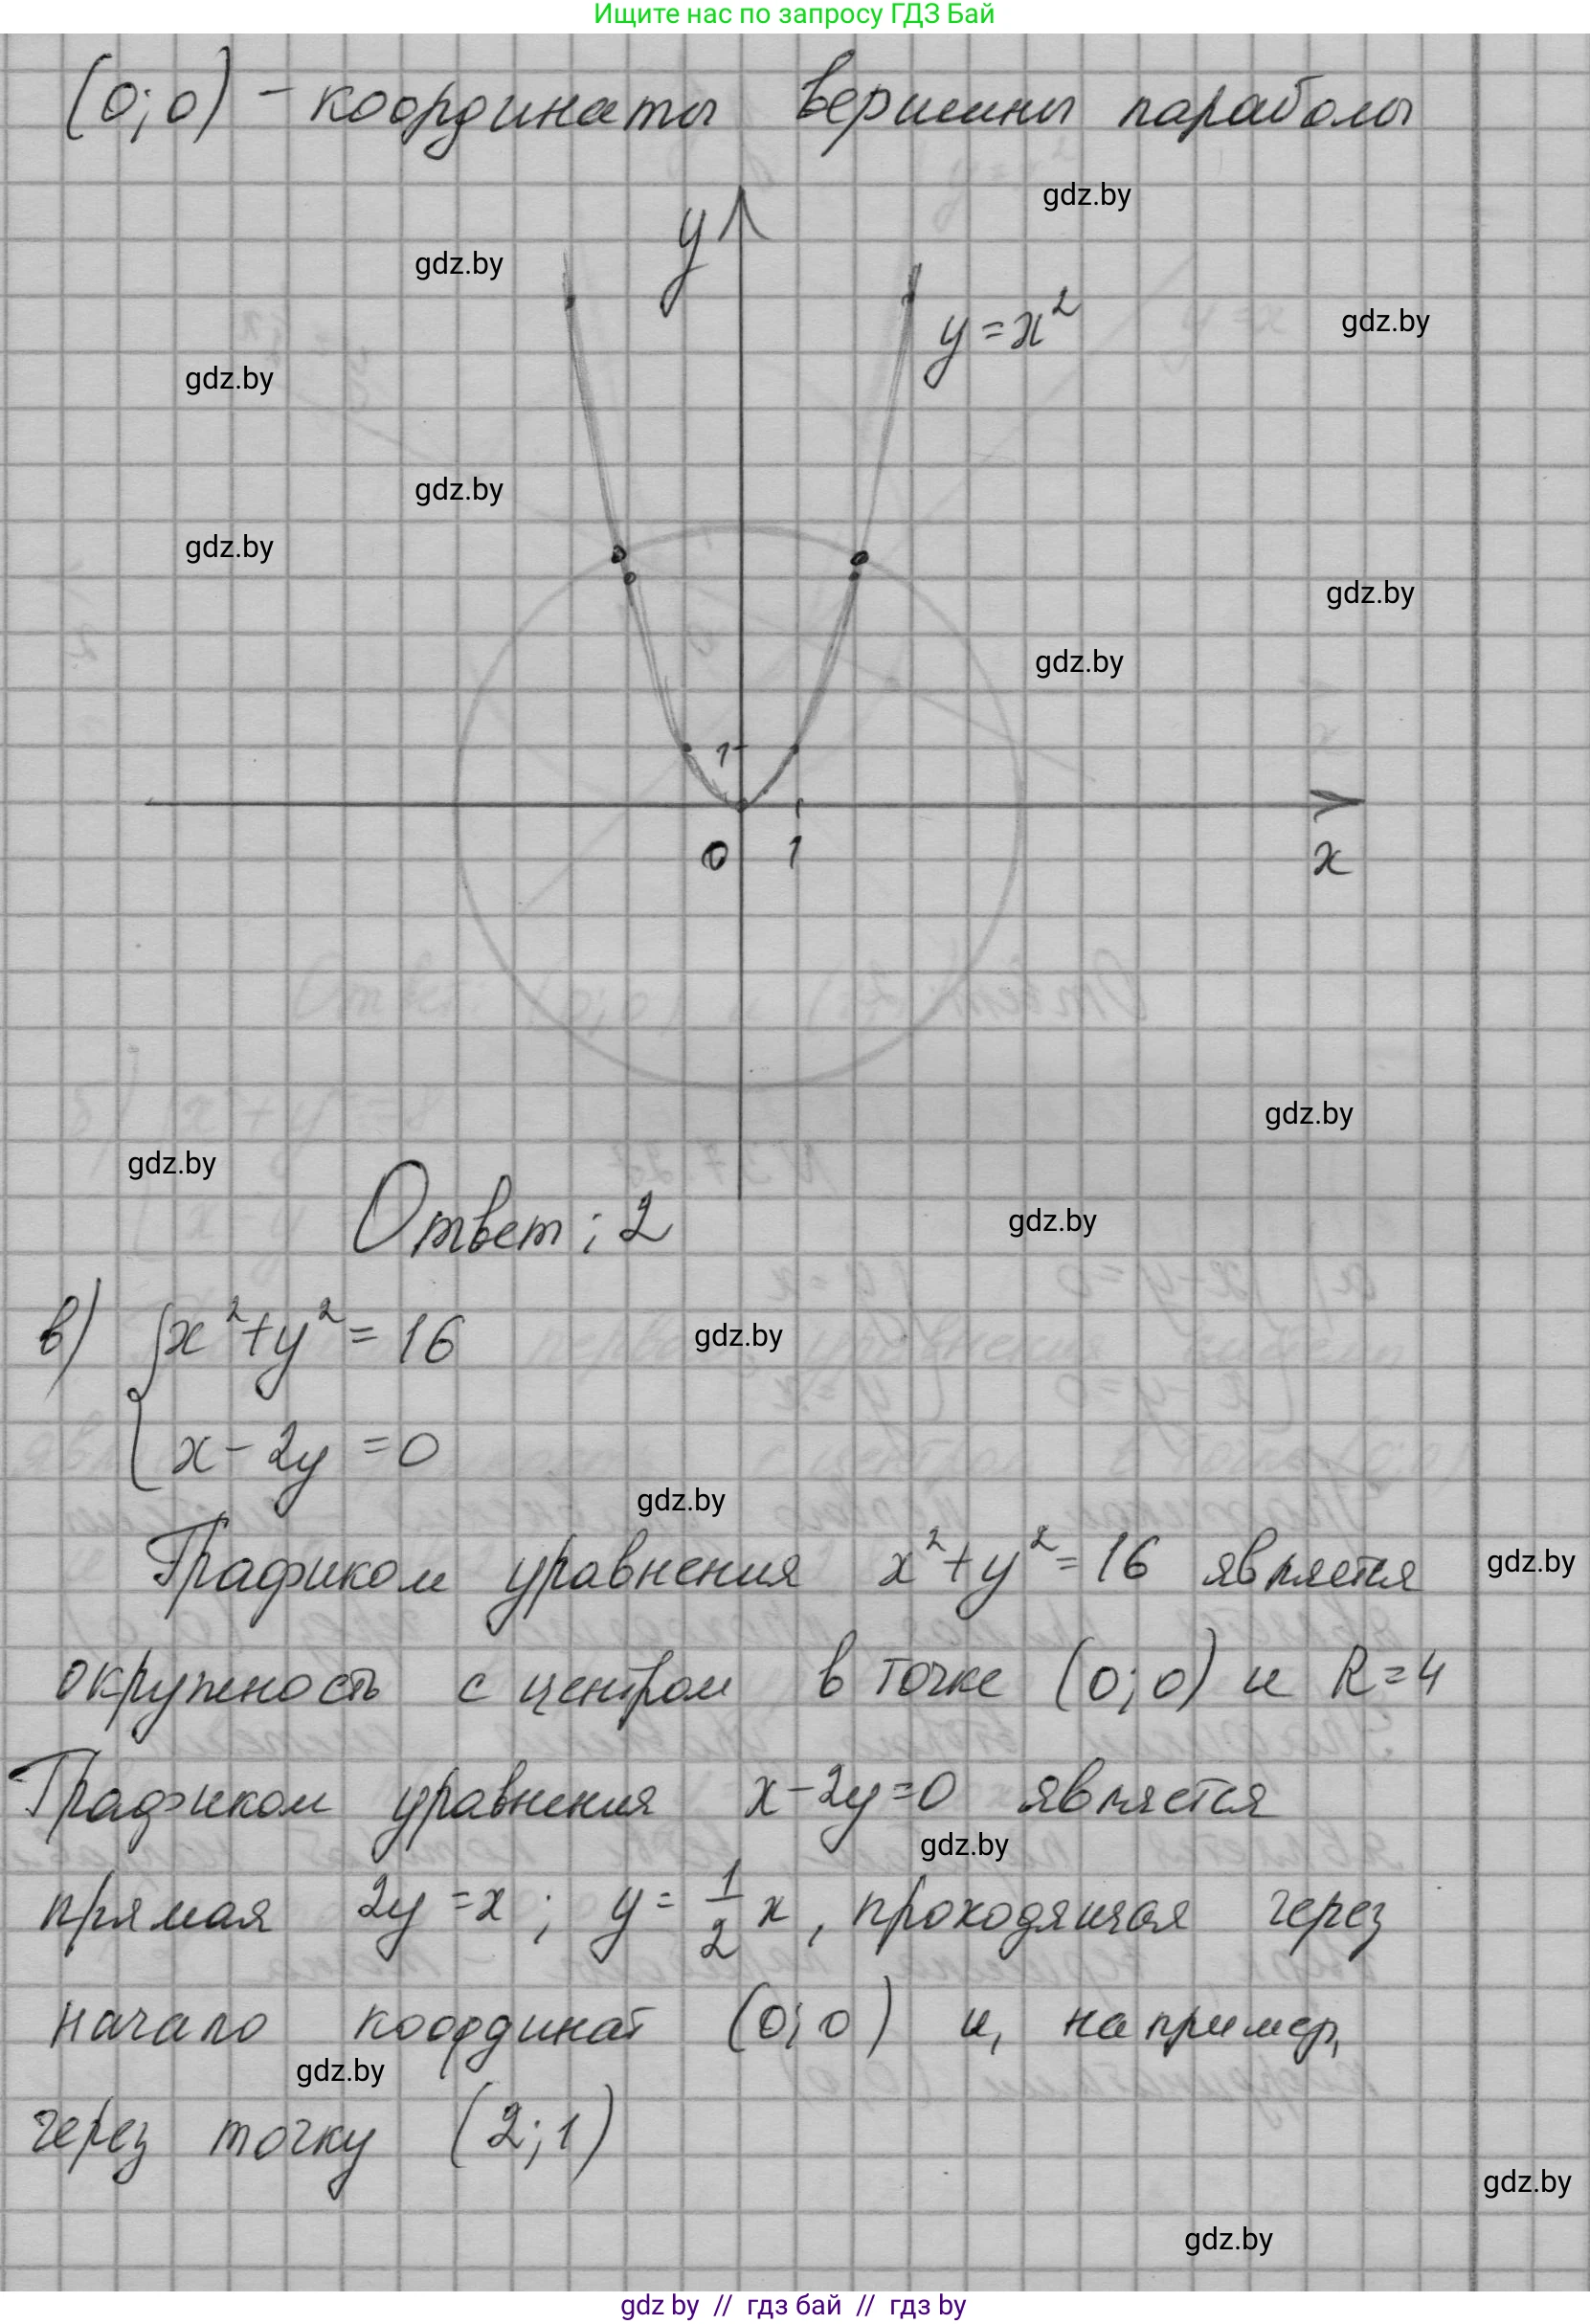 Ищите нас по запросу ГДЗ Бай
(0;0) - координаты вершины параболы
gdz.by
y
gdz.by
y = x²
gdz.by
gdz.by
gdz.by
gdz.by
gdz.by
gdz.by
1
0 1 x
gdz.by
gdz.by
Ответ: 2
gdz.by
в) { x² + y² = 16
gdz.by
x - 2y = 0
gdz.by
Графиком уравнения x² + y² = 16 является
gdz.by
окружность с центром в точке (0;0) и R = 4
Графиком уравнения x - 2y = 0 является
gdz.by
прямая 2y = x; y = 1/2 x, проходящая через
начало координат (0;0) и, например,
gdz.by
через точку (2;1)
gdz.by
gdz.by
gdz by // гдз бай // гдз by